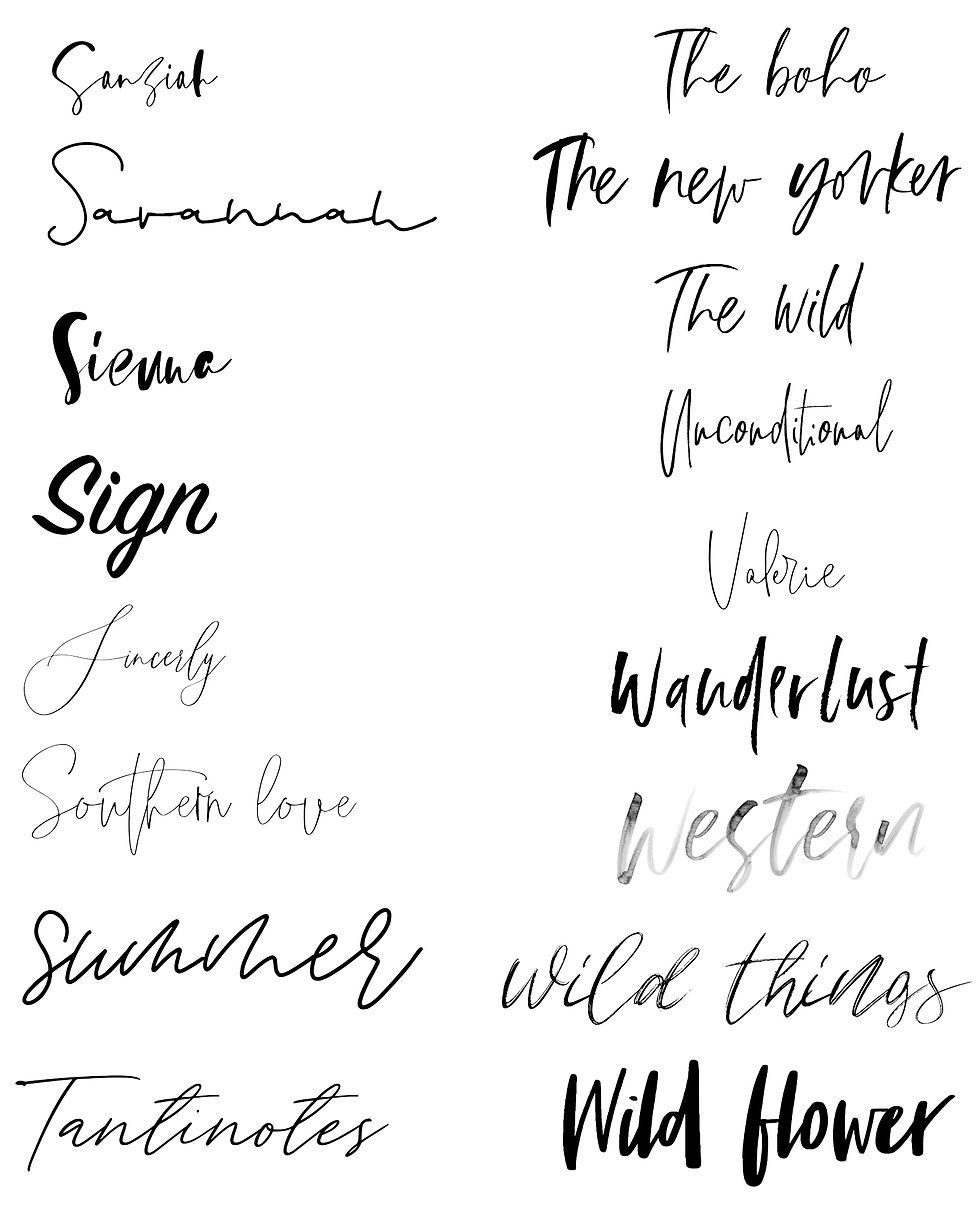 Sanziah
Savannah
Sienna
Sign
Sincerly
Southern love
summer
Tantinotes
The boho
The new yorker
The wild
Unconditional
Valerie
Wanderlust
Western
wild things
Wild flower